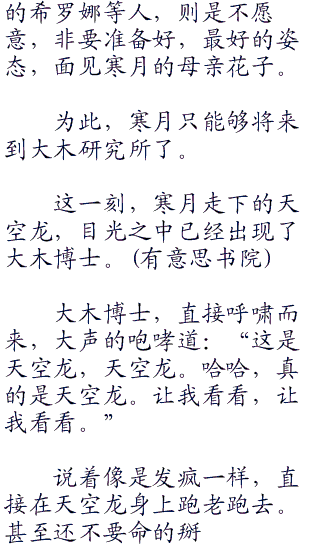 的希罗娜等人，则是不愿
意，非要准备好，最好的姿
态，面见寒月的母亲花子。
为此，寒月只能够将来
到大木研究所了。
这一刻，寒月走下的天
空龙，目光之中已经出现了
大木博士。(有意思书院)
大木博士，直接呼啸而
来，大声的咆哮道：“这是
天空龙，天空龙。哈哈，真
的是天空龙。让我看看，让
我看看。”
说着像是发疯一样，直
接在天空龙身上跑老跑去。
甚至还不要命的掰